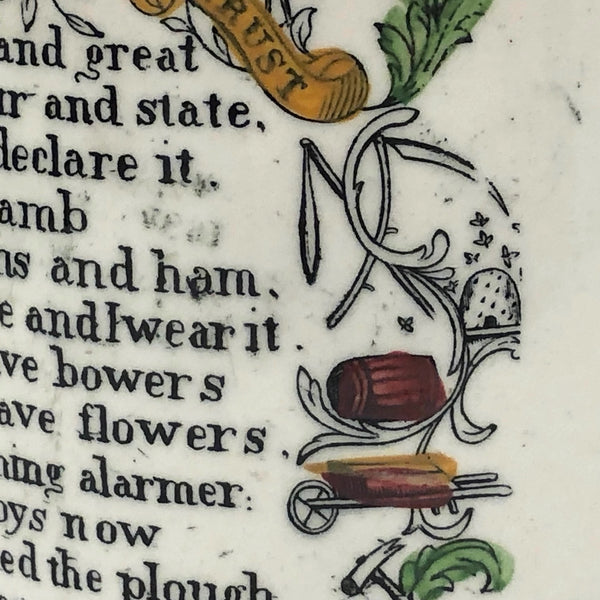 RUST
and great
ur and state,
declare it.
amb
ns and ham.
e and I wear it.
ve bowers
ave flowers.
ming alarmer:
oys now
ed the plough